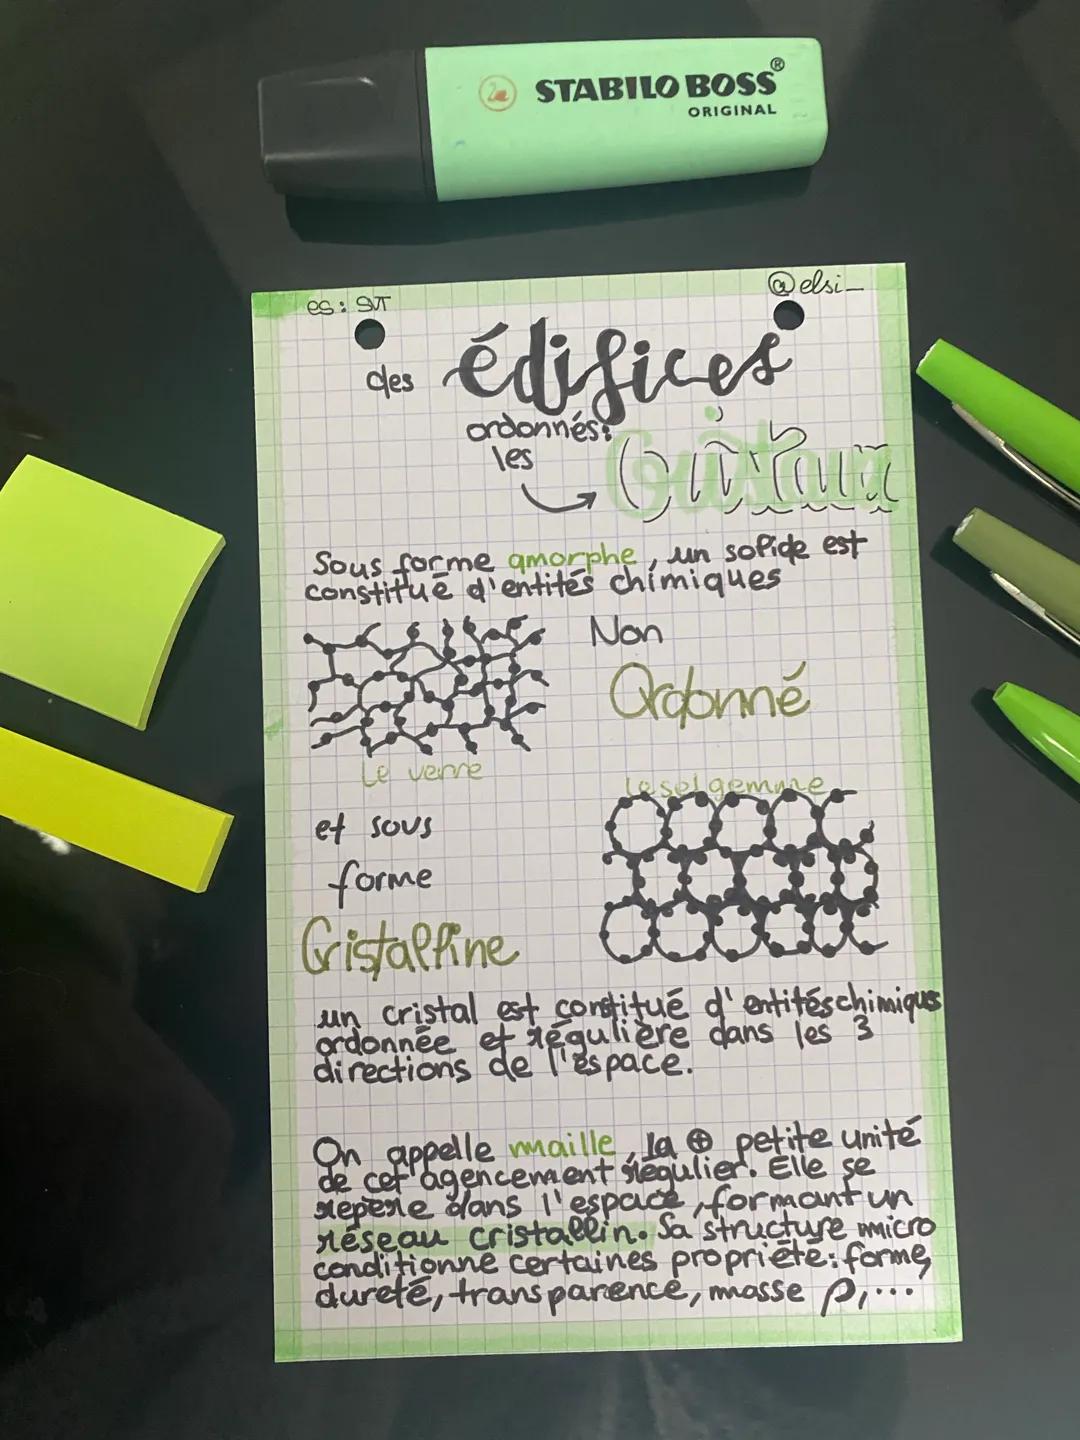 STABILO BOSS®
ORIGINAL
es: SVT
@elsi_
des édifices
ordonnés:
les
Cristaux
Sous forme amorphe, un solide est
constitué d'entités chimiques
Non
Ordonné
Le verre
le sel gemme
et sous
forme
Cristalline
un cristal est constitué d'entités chimiques
ordonnée et régulière dans les 3
directions de l'espace.
On appelle maille, la ⊕ petite unité
de cet agencement régulier. Elle se
repère dans l'espace, formant un
réseau cristallin. Sa structure micro
conditionne certaines propriété: forme,
dureté, transparence, masse ρ,...